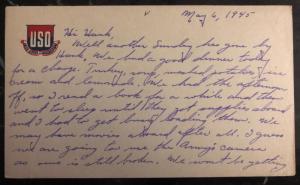 May 6, 1945
USO
Hi Hank,
Well another Sunday has gone by
Hank, we had a good dinner today
for a change. Turkey, mashed potatoes, ice
cream and lemonade. We had the afternoon
off, so I read a book for a while and then
went to sleep until they got supplies aboard
and I had to get busy loading them. We
may have movies aboard after all. I guess
we are going to use the Army's camera
as ours is still broken. We won't be getting